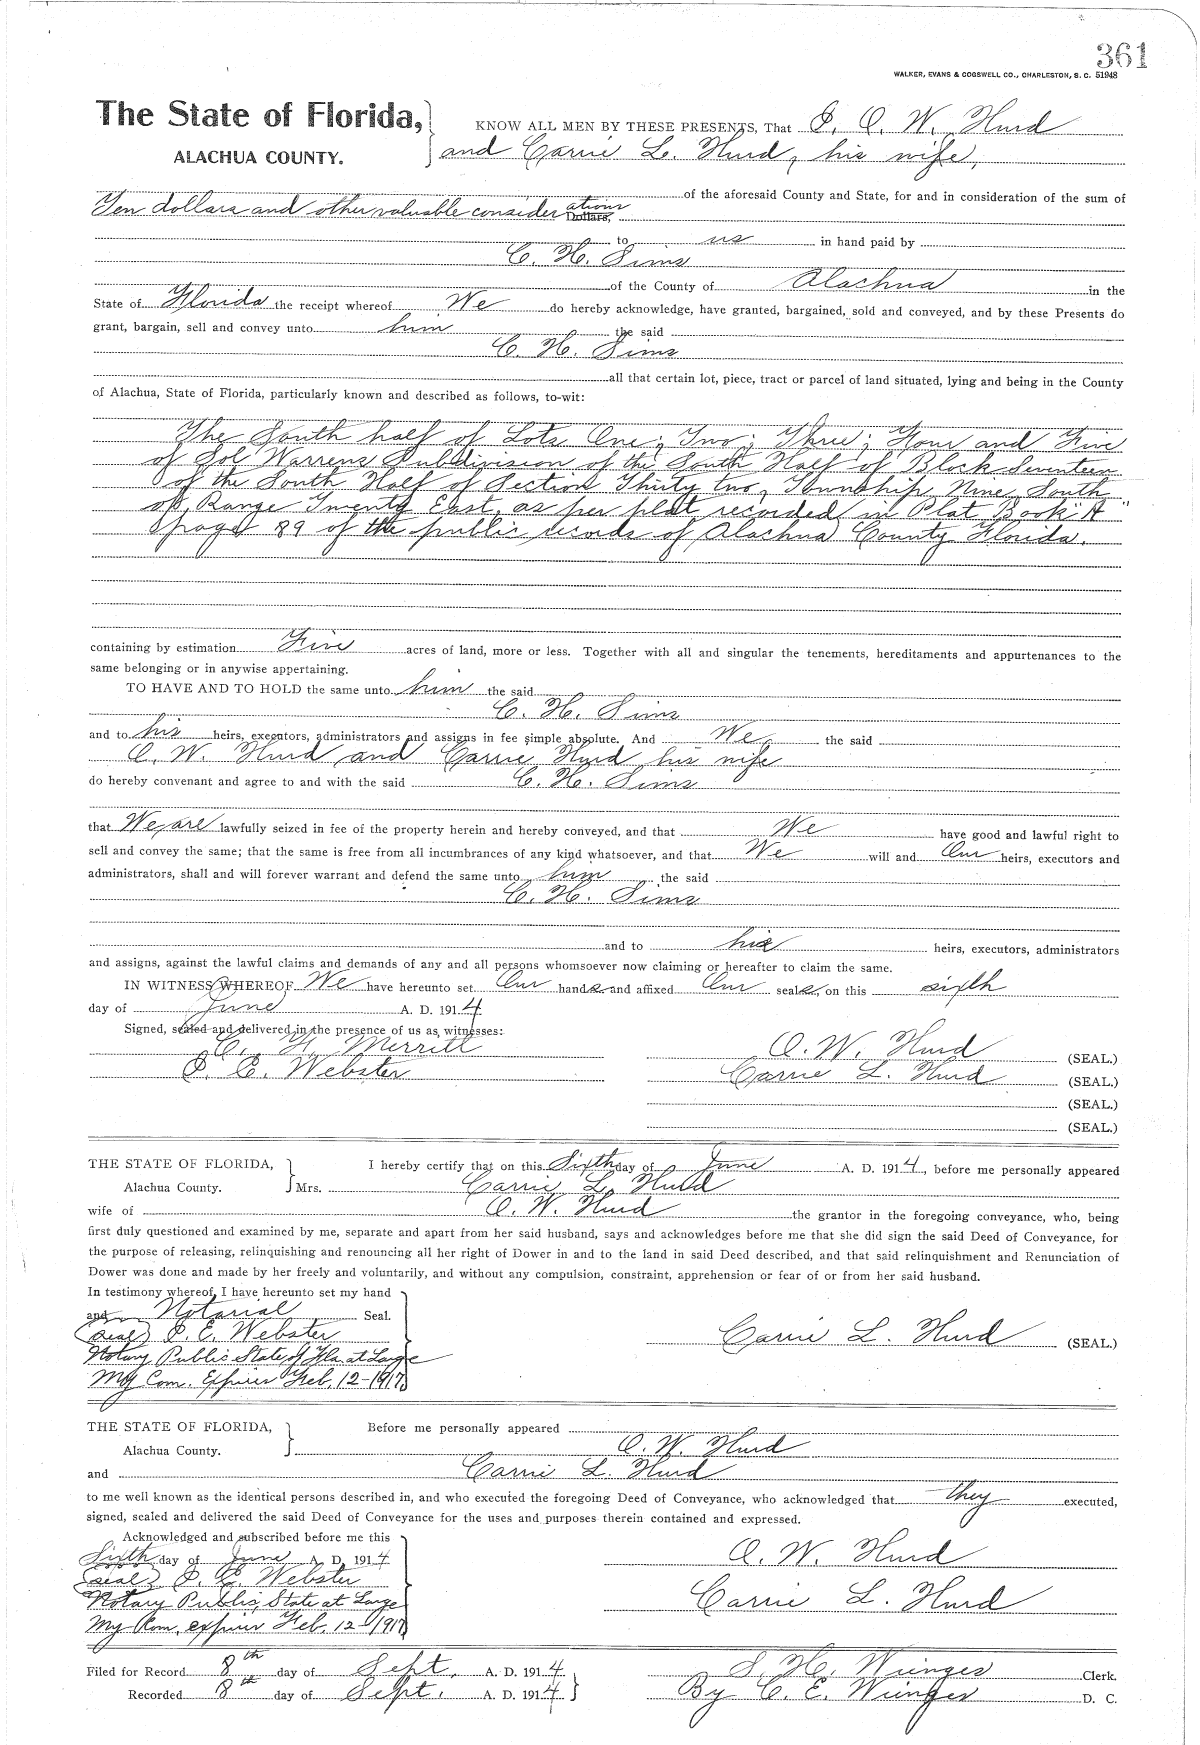 361
WALKER, EVANS & COGSWELL CO., CHARLESTON, S. C. 51948
The State of Florida,
ALACHUA COUNTY.
KNOW ALL MEN BY THESE PRESENTS, That O. W. Hurd
and Carrie L. Hurd, his wife,
of the aforesaid County and State, for and in consideration of the sum of
Ten dollars and other valuable considerations Dollars,
to us in hand paid by
C. H. Sims
of the County of Alachua in the
State of Florida the receipt whereof We do hereby acknowledge, have granted, bargained, sold and conveyed, and by these Presents do
grant, bargain, sell and convey unto him the said
C. H. Sims
all that certain lot, piece, tract or parcel of land situated, lying and being in the County
of Alachua, State of Florida, particularly known and described as follows, to-wit:
The South half of Lots One; Two; Three; Four and Five
of Sol Warrens Subdivision of the South Half of Block Seventeen
of the South Half of Section Thirty two, Township Nine South
of Range Twenty East, as per plat recorded in Plat Book "A"
page 89 of the public records of Alachua County Florida.
containing by estimation Five acres of land, more or less. Together with all and singular the tenements, hereditaments and appurtenances to the
same belonging or in anywise appertaining.
TO HAVE AND TO HOLD the same unto him the said
C. H. Sims
and to his heirs, executors, administrators and assigns in fee simple absolute. And We, the said
O. W. Hurd and Carrie Hurd his wife
do hereby convenant and agree to and with the said C. H. Sims
that We are lawfully seized in fee of the property herein and hereby conveyed, and that We have good and lawful right to
sell and convey the same; that the same is free from all incumbrances of any kind whatsoever, and that We will and Our heirs, executors and
administrators, shall and will forever warrant and defend the same unto him the said
C. H. Sims
and to his heirs, executors, administrators
and assigns, against the lawful claims and demands of any and all persons whomsoever now claiming or hereafter to claim the same.
IN WITNESS WHEREOF We have hereunto set Our hands and affixed Our seals, on this sixth
day of June A. D. 1914
Signed, sealed and delivered in the presence of us as witnesses:
Merritt
O. W. Hurd (SEAL.)
E. Webster
Carrie L. Hurd (SEAL.)
(SEAL.)
(SEAL.)
THE STATE OF FLORIDA,
Alachua County.
I hereby certify that on this Sixth day of June A. D. 1914, before me personally appeared
Mrs. Carrie L. Hurd
wife of O. W. Hurd the grantor in the foregoing conveyance, who, being
first duly questioned and examined by me, separate and apart from her said husband, says and acknowledges before me that she did sign the said Deed of Conveyance, for
the purpose of releasing, relinquishing and renouncing all her right of Dower in and to the land in said Deed described, and that said relinquishment and Renunciation of
Dower was done and made by her freely and voluntarily, and without any compulsion, constraint, apprehension or fear of or from her said husband.
In testimony whereof, I have hereunto set my hand
and Notarial Seal.
(seal) E. Webster
Carrie L. Hurd (SEAL.)
Notary Public State of Fla. at Large
My Com. Expires Feb, 12-1917
THE STATE OF FLORIDA,
Alachua County.
Before me personally appeared
O. W. Hurd
and Carrie L. Hurd
to me well known as the identical persons described in, and who executed the foregoing Deed of Conveyance, who acknowledged that they executed,
signed, sealed and delivered the said Deed of Conveyance for the uses and purposes therein contained and expressed.
Acknowledged and subscribed before me this
Sixth day of June A. D. 1914
O. W. Hurd
(seal) E. Webster
Notary Public, State at Large
Carrie L. Hurd
My Com, expires Feb, 12-1917
Filed for Record 8th day of Sept, A. D. 1914
S. H. Wienges Clerk.
Recorded 8th day of Sept. A. D. 1914
By C. E. Wienges D. C.